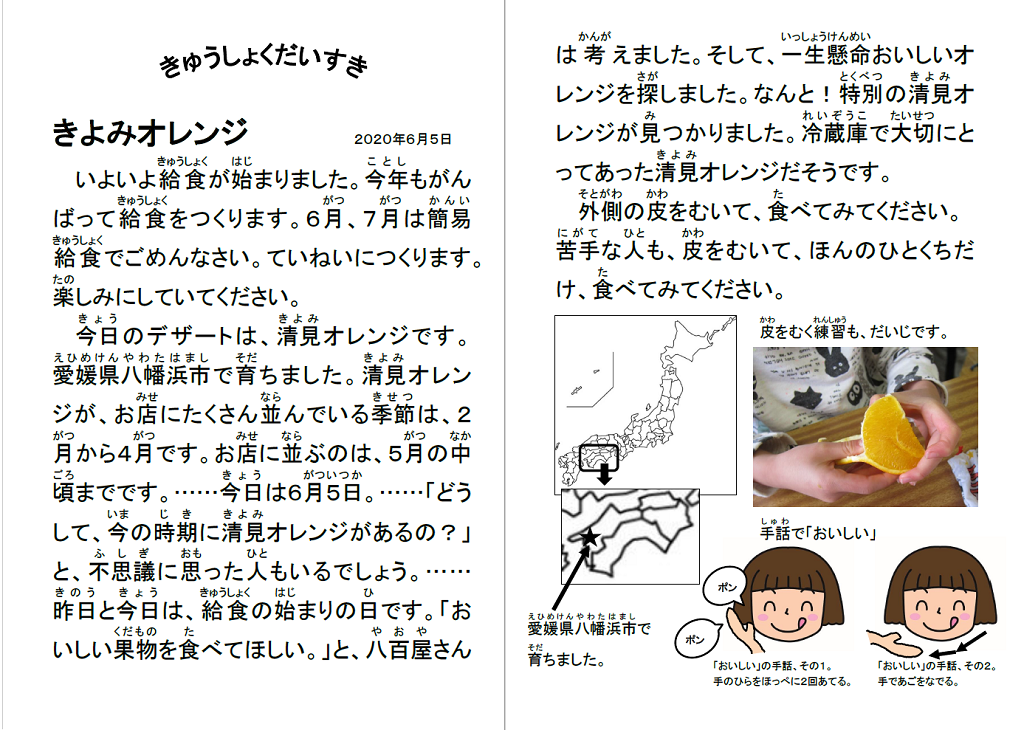 きゅうしょくだいすき
きよみオレンジ
2020年6月5日
いよいよ給食が始まりました。今年もがん
ばって給食をつくります。6月、7月は簡易
給食でごめんなさい。ていねいにつくります。
楽しみにしていてください。
今日のデザートは、清見オレンジです。
愛媛県八幡浜市で育ちました。清見オレン
ジが、お店にたくさん並んでいる季節は、2
月から4月です。お店に並ぶのは、5月の中
頃までです。……今日は6月5日。……「どう
して、今の時期に清見オレンジがあるの？」
と、不思議に思った人もいるでしょう。……
昨日と今日は、給食の始まりの日です。「お
いしい果物を食べてほしい。」と、八百屋さん
は考えました。そして、一生懸命おいしいオ
レンジを探しました。なんと！特別の清見オ
レンジが見つかりました。冷蔵庫で大切にと
ってあった清見オレンジだそうです。
外側の皮をむいて、食べてみてください。
苦手な人も、皮をむいて、ほんのひとくちだ
け、食べてみてください。
皮をむく練習も、だいじです。
愛媛県八幡浜市で
育ちました。
手話で「おいしい」
ポン
ポン
「おいしい」の手話、その1。
手のひらをほっぺに2回あてる。
「おいしい」の手話、その2。
手であごをなでる。